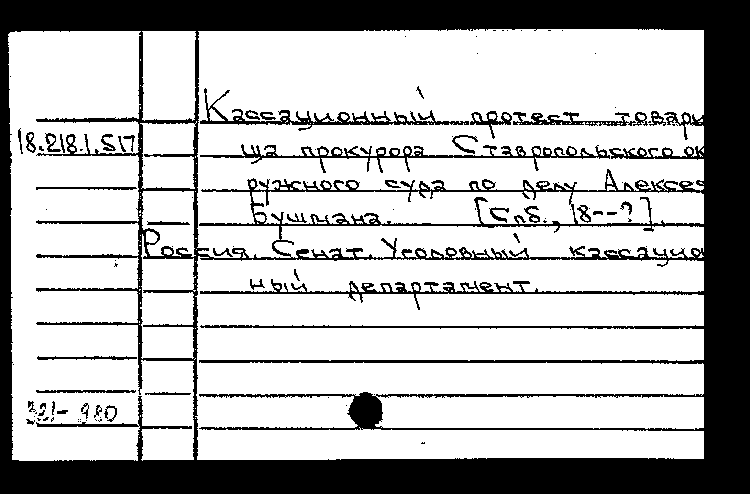 Кассационный протест товари
18.218.1.517 ща прокурора Ставропольского ок
ружного суда по делу Алексея
Бушмана. [Спб., 18--?].
Россия. Сенат. Уголовный кассацио
ный департамент.
321-980